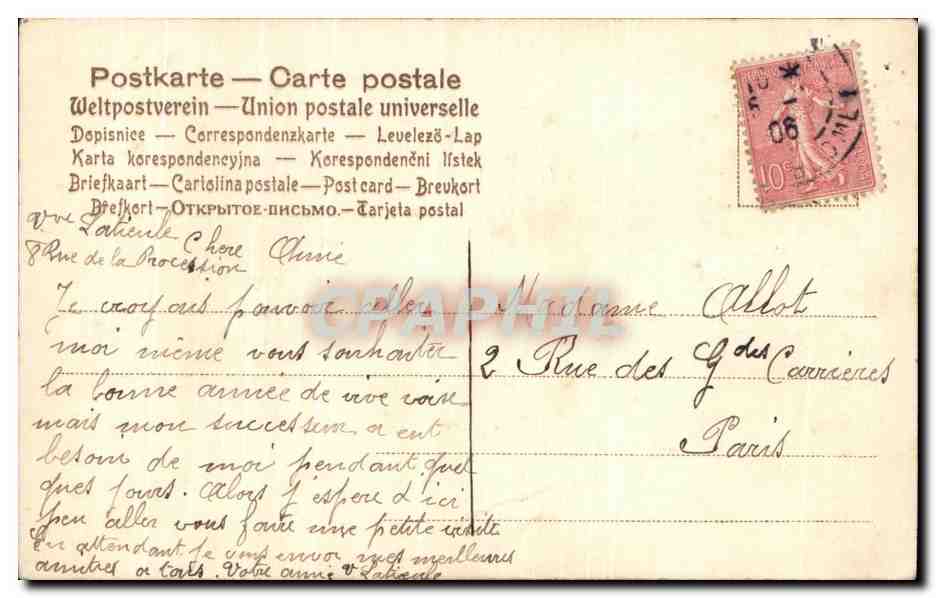 Postkarte — Carte postale
Weltpostverein — Union postale universelle
Dopisnice — Correspondenzkarte — Levelező-Lap
Karta korespondencyjna — Korespondenčni lístek
Briefkaart — Cartolina postale — Post card — Brevkort
Brefkort — Открытое-письмо. — Tarjeta postal
10 c
06
Vve Laticule
8 Rue de la Procession
Chere Amie
Je croyais pouvoir aller
moi même vous souhaiter
la bonne année de vive voix
mais mon successeur a eut
besoin de moi pendant quel
ques jours. Alors j'espere d'ici
peu aller vous faire une petite visite
En attendant je vous envoi mes meilleures
amitiés a tous. Votre amie V Laticule
Madame Allot
2 Rue des Gdes Carrières
Paris
CPAPHIL